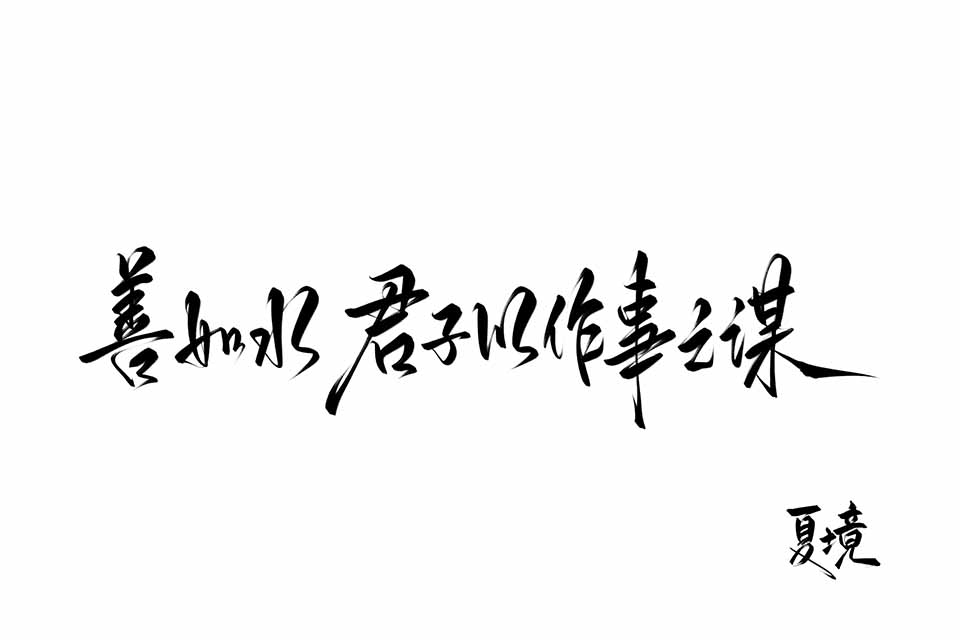 善如水 君子以作事之谋
夏境